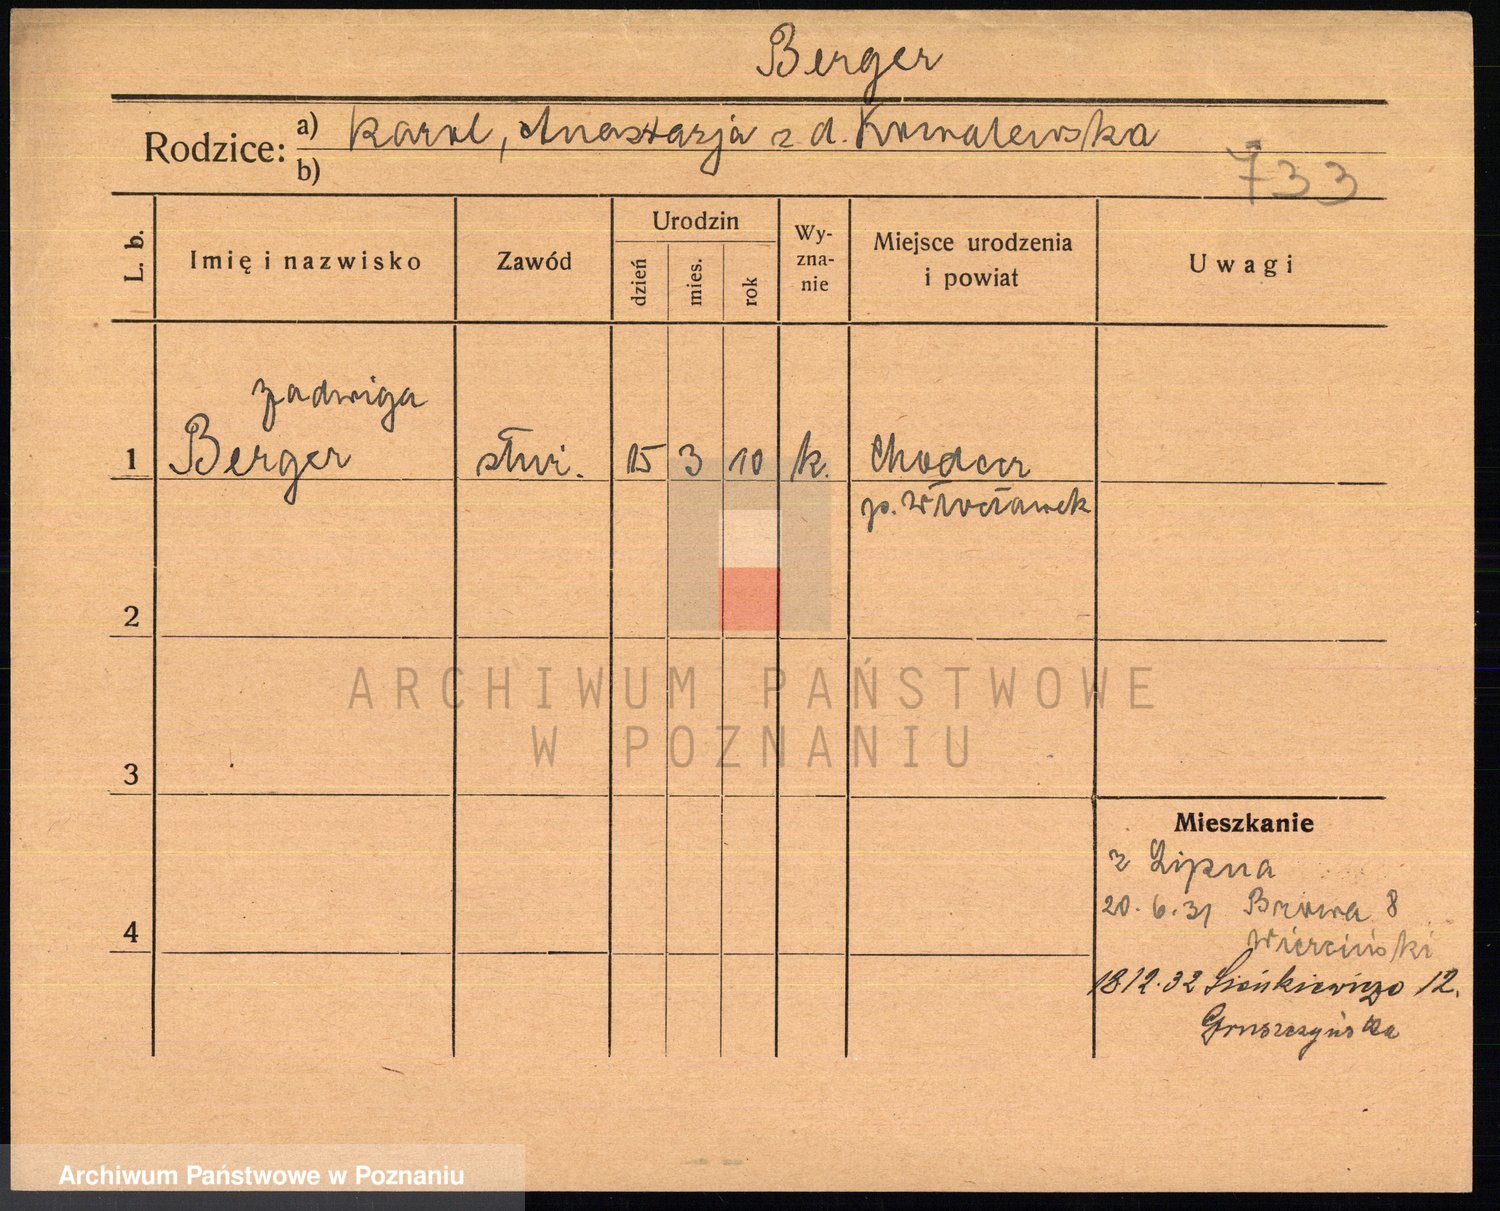 Berger
Rodzice: a) Karol, Anastazja z d. Kowalewska
b)
733
L. b. Imię i nazwisko Zawód Urodzin dzień mies. rok Wy-zna-nie Miejsce urodzenia i powiat Uwagi
Jadwiga
1 Berger służ. 15 3 10 k. Chodecz
p. Włocławek
2
ARCHIWUM PAŃSTWOWE
W POZNANIU
3
Mieszkanie
z Lipna
20.6.31 8
4
Wierciński
18 12.32 Sienkiewicza 12.
Gruszczyńska
Archiwum Państwowe w Poznaniu